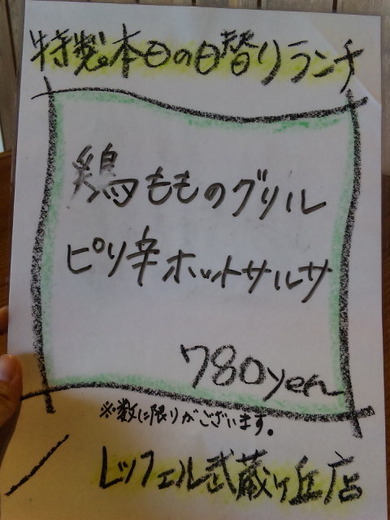 特製本日の日替りランチ
鶏もものグリル
ピリ辛ホットサルサ
780yen
※数に限りがございます。
レッフェル武蔵ヶ丘店